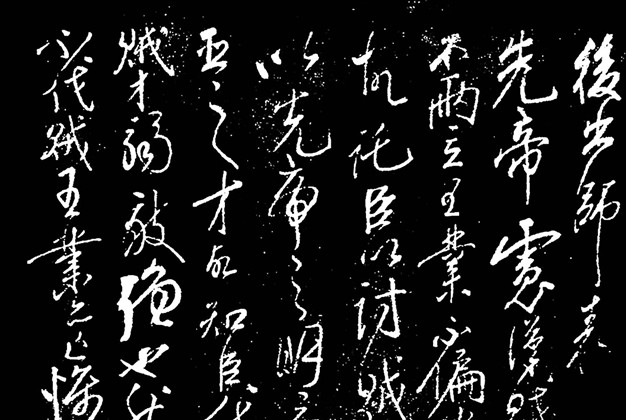 後出師表
先帝慮漢賊
不兩立王業不偏
故託臣以討賊
以先帝之明
臣之才故知臣伐
賊才弱敵強也
不伐賊王業亦亡惟